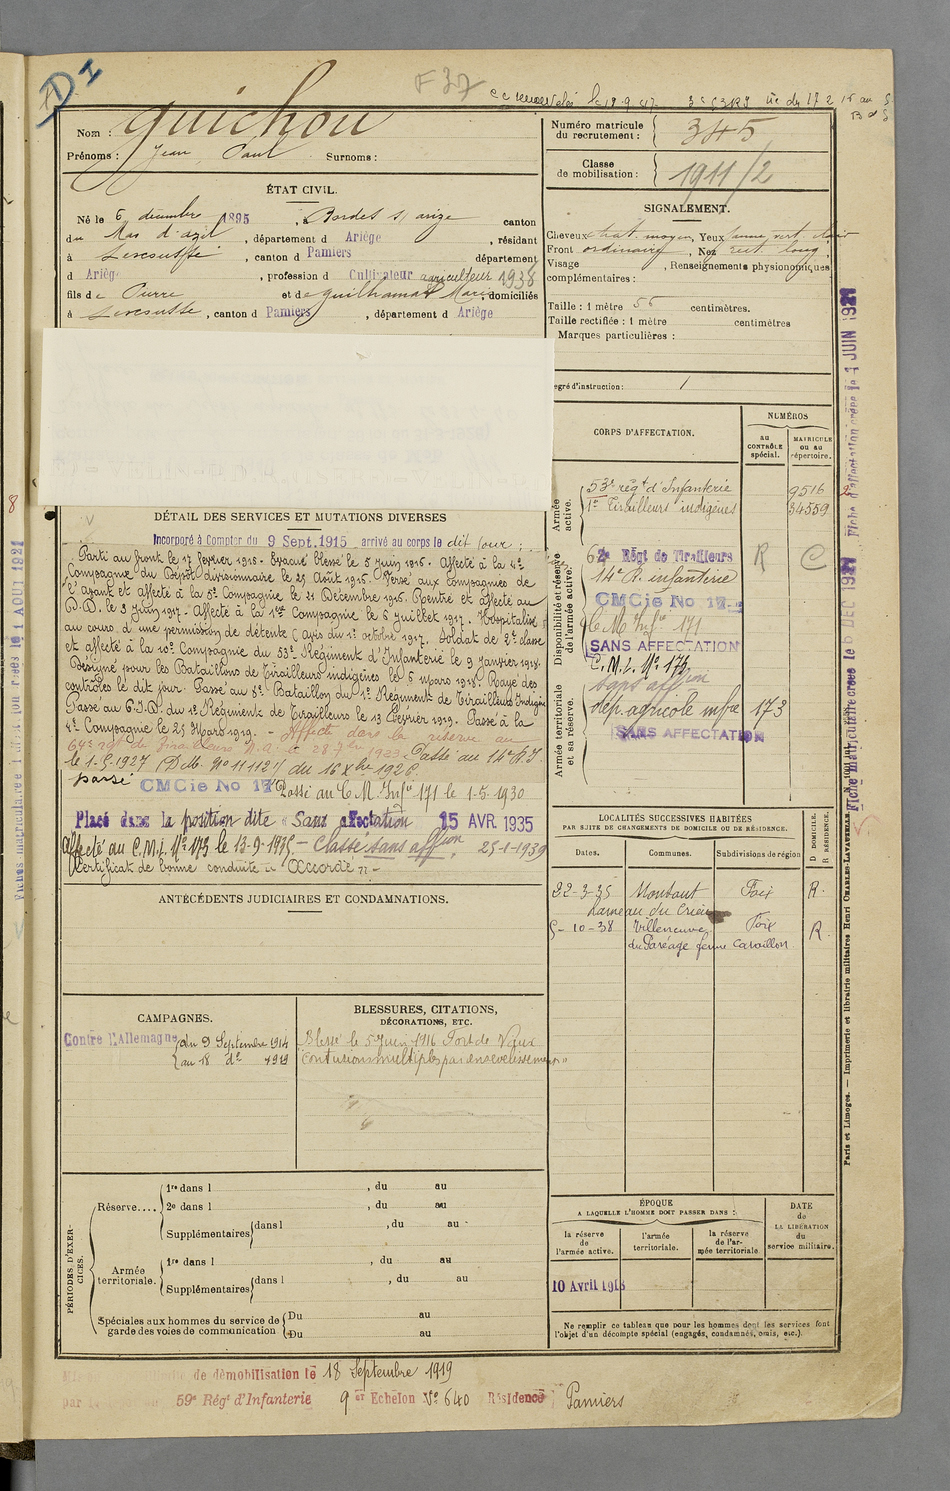 F 37
Nom : Guichou
Prénoms : Jean Paul Surnoms :
Numéro matricule du recrutement : 345
Classe de mobilisation : 1911/2
ÉTAT CIVIL.
Né le 6 décembre 1895, à Bordes s/ arize canton
du Mas d'azil, département d Ariège, résidant
à Lescousse, canton d Pamiers département
d Ariège, profession d Cultivateur agriculteur 1938
fils de et de Guilhamat Marie, domiciliés
à Lescousse, canton d Pamiers, département d Ariège
SIGNALEMENT.
Cheveux chat. moyen, Yeux
Front ordinaire, Nez rect. long
Visage , Renseignements physionomiques
complémentaires :
Taille : 1 mètre 55 centimètres.
Taille rectifiée : 1 mètre centimètres
Marques particulières :
egré d'instruction : 1
CORPS D'AFFECTATION.
NUMÉROS
au CONTRÔLE spécial.
MATRICULE ou au répertoire.
Armée active.
53e régt d'Infanterie 9516
1er Tirailleurs indigènes 34559
Disponibilité et réserve de l'armée active.
Régt de Tirailleurs R C
14e R. infanterie
CMCie No 17
C M Infie 171
SANS AFFECTATION
C.M.I. No 173
sans affion
Armée territoriale et sa réserve.
dép. agricole 173
SANS AFFECTATION
DÉTAIL DES SERVICES ET MUTATIONS DIVERSES
Incorporé à Compter du 9 Sept. 1915 arrivé au corps le dit jour :
Parti au front le 17 février 1916. Evacué blessé le 5 juin 1916. Affecté à la 4e
Compagnie du Dépôt divisionnaire le 25 Août 1916. Versé aux compagnies de
l'avant et affecté à la 5e Compagnie le 21 Décembre 1916. Rentré et affecté au
D.D. le 3 Juin 1917. Affecté à la 1re Compagnie le 6 juillet 1917. Hospitalisé
au cours d'une permission de détente (avis du 1er octobre 1917. Soldat de 2e classe
et affecté à la 10e Compagnie du 53e Régiment d'Infanterie le 9 Janvier 1918.
Désigné pour les Bataillons de Tirailleurs indigènes le 6 mars 1918. Rayé des
contrôles le dit jour. Passé au 5e Bataillon du 1er Régiment de Tirailleurs Indigènes
Passé au C.I.D. du 1er Régiment de Tirailleurs le 13 Février 1919. Passé à la
4e Compagnie le 25 Mars 1919. - Affecté dans la réserve au
64e régt de Tirailleurs N.A. le 28 7bre 1923. Passé au 14e R.I.
le 1.5.1927 (D.M. No 11112/ du 16 Xbre 1926.
passé CMCie No 17 Passé au C.M. Infie 171 le 1.5.1930
Placé dans la position dite « Sans affectation 15 AVR 1935
Affecté au C.M.I. No 173 le 13-9-1935 - Classé sans affion 25-1-1939
Certificat de bonne conduite « Accordé » -
ANTÉCÉDENTS JUDICIAIRES ET CONDAMNATIONS.
LOCALITÉS SUCCESSIVES HABITÉES
PAR SUITE DE CHANGEMENTS DE DOMICILE OU DE RÉSIDENCE.
Dates. Communes. Subdivisions de région D DOMICILE. R RÉSIDENCE.
22-3-35 Montaut Foix R.
hameau du Crieu
5-10-38 Villeneuve Foix R
du Paréage ferme Cavaillon
CAMPAGNES.
Contre l'Allemagne du 9 Septembre 1914
au 18 do 1919
BLESSURES, CITATIONS,
DÉCORATIONS, ETC.
Blessé le 5 Juin 1916 Fort de Vaux
"contusions multiples par ensevelissement"
PÉRIODES D'EXERCICES.
Réserve.... 1re dans l , du au
2e dans l , du au
Supplémentaires dans l , du au
Armée territoriale. 1re dans l , du au
Supplémentaires dans l , du au
Spéciales aux hommes du service de garde des voies de communication Du au
Du au
ÉPOQUE
A LAQUELLE L'HOMME DOIT PASSER DANS :
la réserve de l'armée active.
l'armée territoriale.
la réserve de l'armée territoriale.
DATE de LA LIBÉRATION du service militaire.
10 Avril 1918
Ne remplir ce tableau que pour les hommes dont les services font
l'objet d'un décompte spécial (engagés, condamnés, omis, etc.).
de démobilisation le 18 Septembre 1919
par 59e Régt d'Infanterie 9 Echelon No 640 Résidence Pamiers
Fiche d'affectation créée le 4 JUIN 1921
Fiche matriculaire créée le 16 DEC 1921
Paris et Limoges. — Imprimerie et librairie militaires Henri CHARLES-LAVAUZELLE.